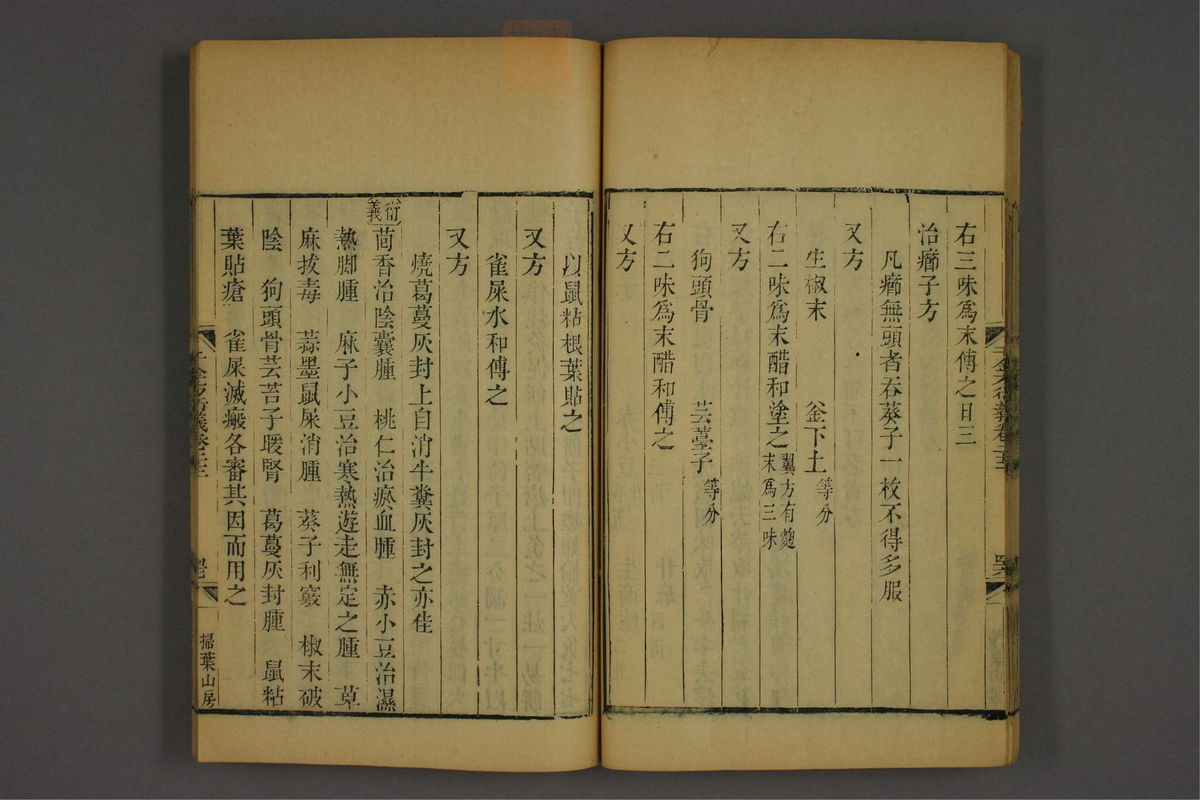 右三味爲末傅之日三
治癤子方
凡癤無頭者吞葵子一枚不得多服
又方
生椒末　釜下土等分
右二味爲末醋和塗之翼方有麴末爲三味
又方
狗頭骨　芸薹子等分
右二味爲末醋和傅之
又方
以鼠粘根葉貼之
又方
雀屎水和傅之
又方
燒葛蔓灰封上自消牛糞灰封之亦佳
衍義茴香治陰囊腫　桃仁治瘀血腫　赤小豆治濕
熱脚腫　麻子小豆治寒熱遊走無定之腫　草
麻拔毒　蒜墨鼠屎消腫　葵子利竅　椒末破
陰　狗頭骨芸苔子暖腎　葛蔓灰封腫　鼠粘
葉貼瘡　雀屎滅瘢各審其因而用之
掃葉山房